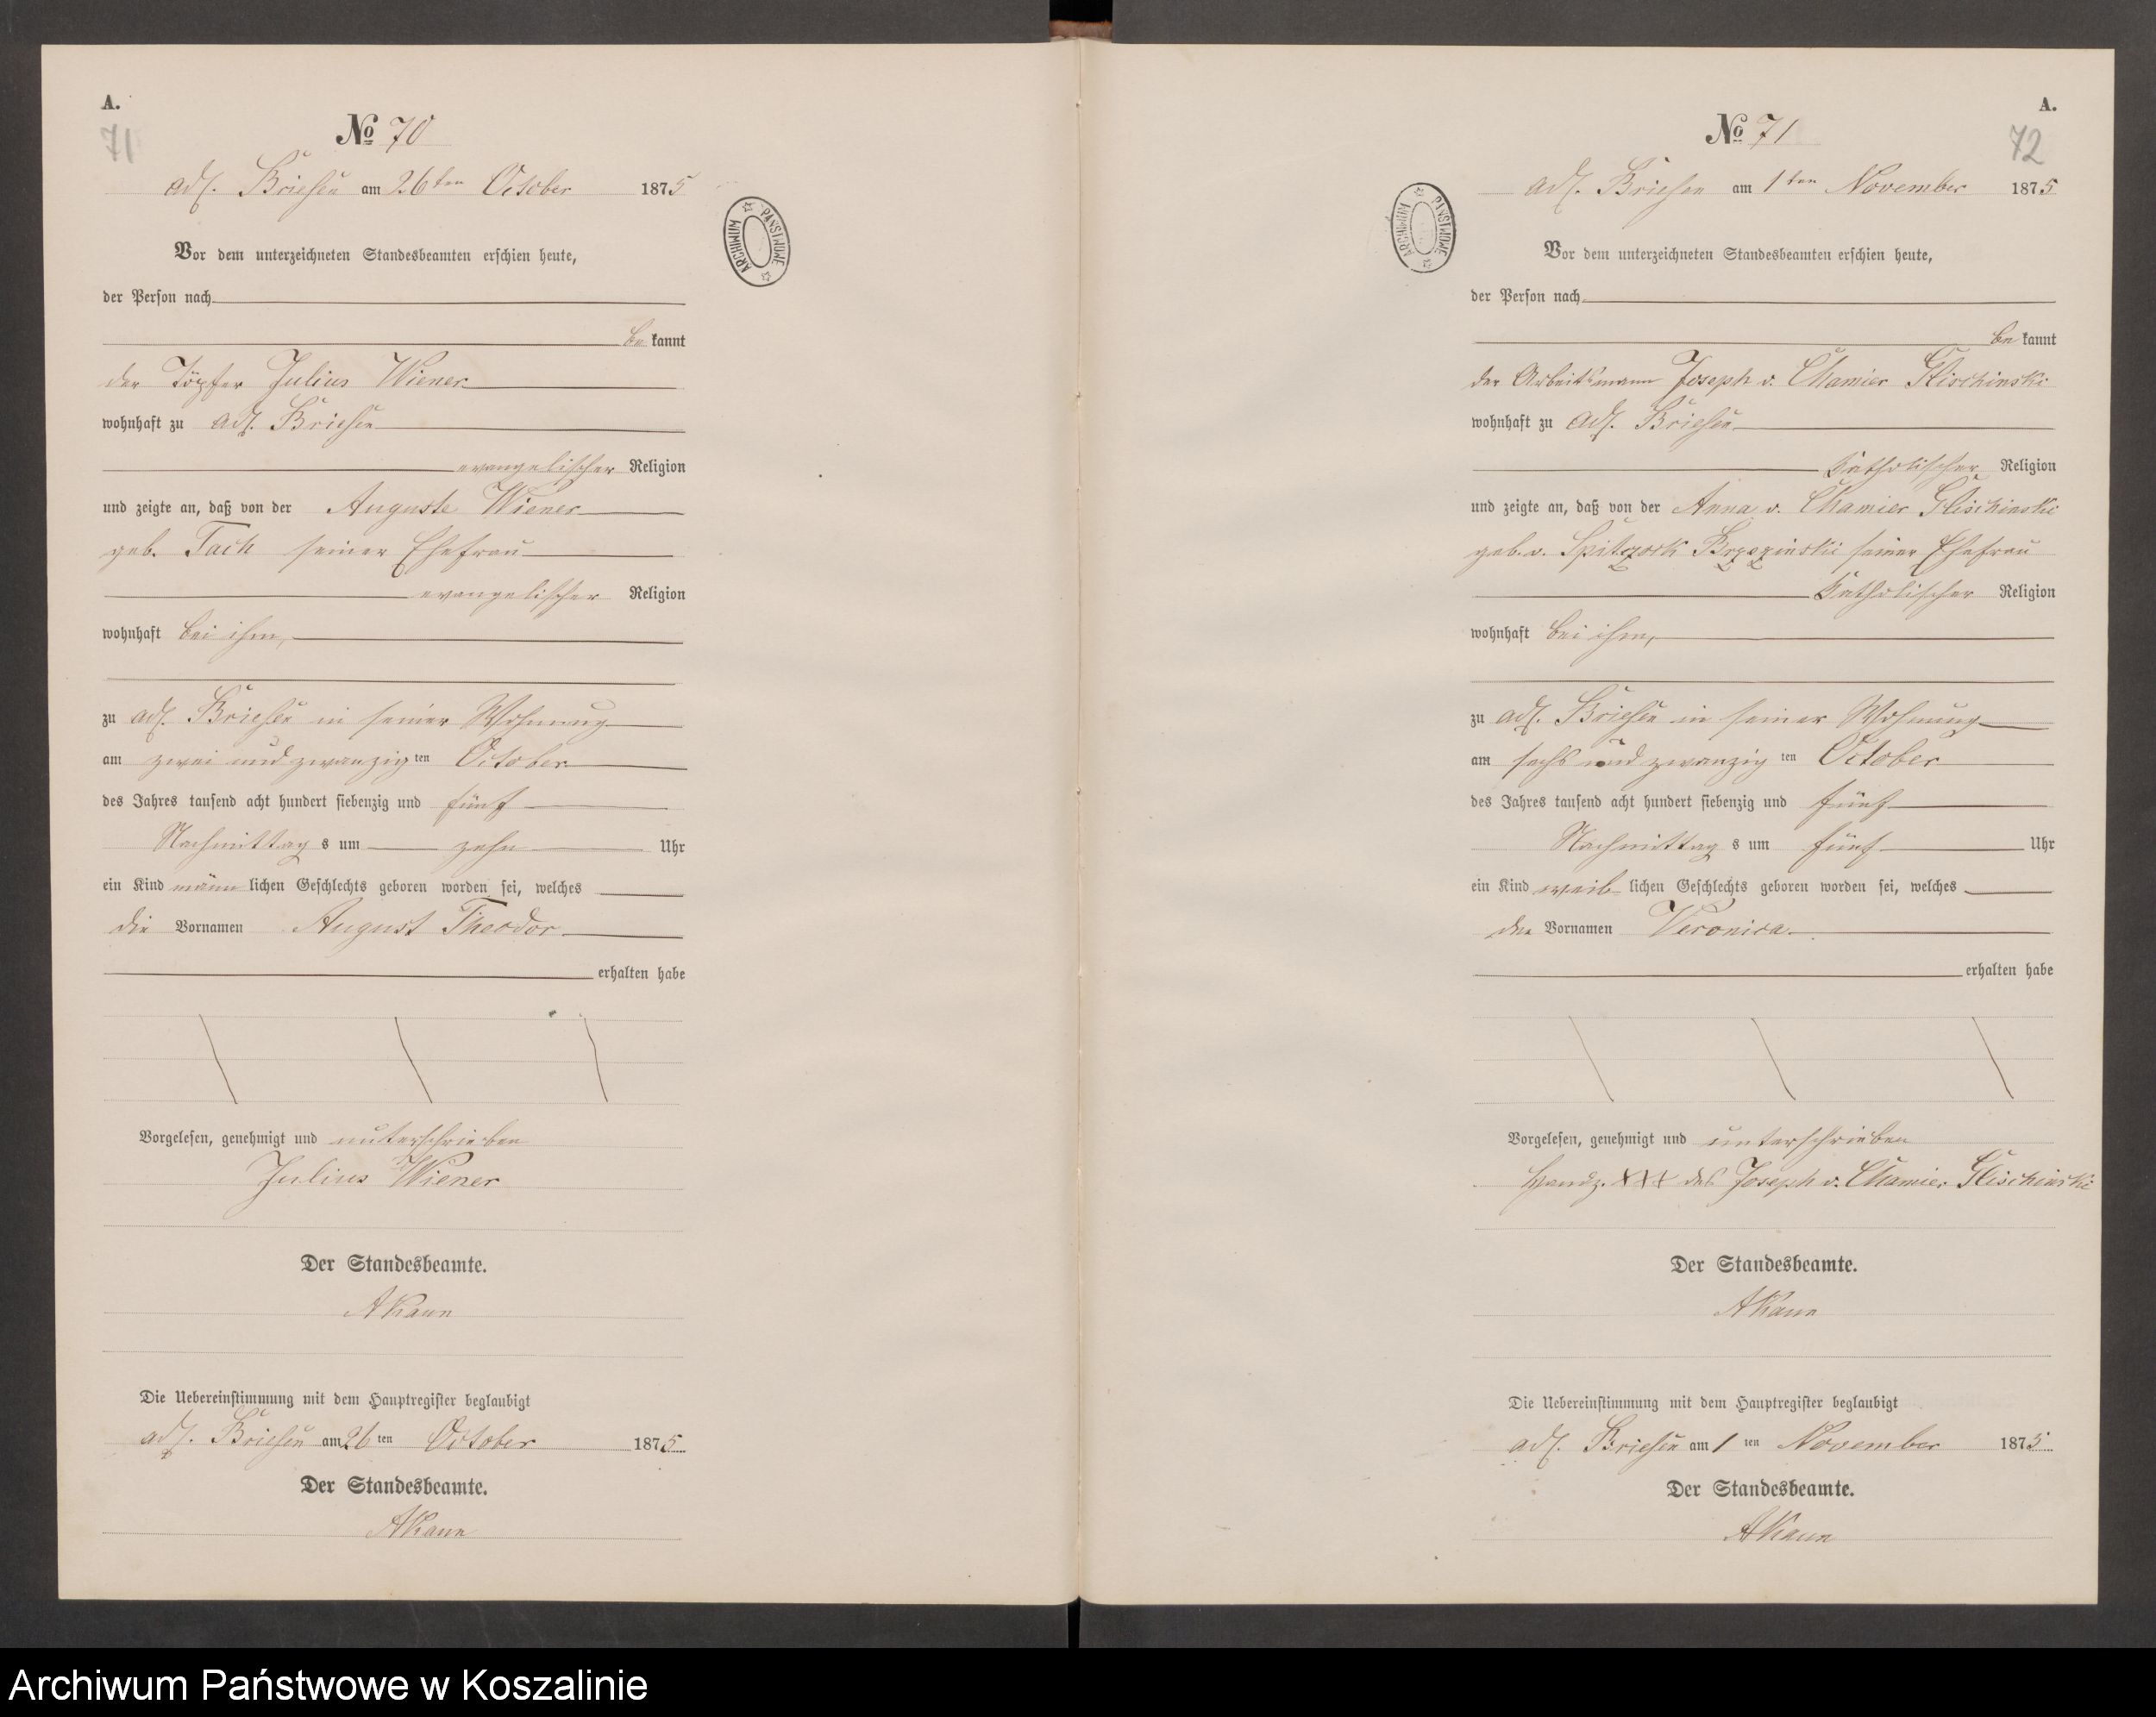 A.
71
№ 70
adl. Briesen am 26ten October 1875
Vor dem unterzeichneten Standesbeamten erschien heute,
der Person nach
bekannt
der Töpfer Julius Wiener
wohnhaft zu adl. Briesen
evangelischer Religion
und zeigte an, daß von der Auguste Wiener
geb. Tach seiner Ehefrau
evangelischer Religion
wohnhaft bei ihm,
zu adl. Briesen in seiner Wohnung
am zwei und zwanzigten October
des Jahres tausend acht hundert siebenzig und fünf
Nachmittags um zehn Uhr
ein Kind männlichen Geschlechts geboren worden sei, welches
die Vornamen August Theodor
erhalten habe
Vorgelesen, genehmigt und unterschrieben
Julius Wiener
Der Standesbeamte.
Die Uebereinstimmung mit dem Hauptregister beglaubigt
adl. Briesen am 26ten October 1875
Der Standesbeamte.
ARCHIWUM PAŃSTWOWE
A.
72
№ 71
adl. Briesen am 1ten November 1875
Vor dem unterzeichneten Standesbeamten erschien heute,
der Person nach
bekannt
der Arbeitsmann Joseph v. Chamier Glischinski
wohnhaft zu adl. Briesen
katholischer Religion
und zeigte an, daß von der Anna v. Chamier Glischinski
geb. v. Brzezinski seiner Ehefrau
katholischer Religion
wohnhaft bei ihm,
zu adl. Briesen in seiner Wohnung
am sechs und zwanzigten October
des Jahres tausend acht hundert siebenzig und fünf
Nachmittags um fünf Uhr
ein Kind weiblichen Geschlechts geboren worden sei, welches
den Vornamen Veronica
erhalten habe
Vorgelesen, genehmigt und unterschrieben
Handz. XXX des Joseph v. Chamier Glischinski
Der Standesbeamte.
Die Uebereinstimmung mit dem Hauptregister beglaubigt
adl. Briesen am 1ten November 1875
Der Standesbeamte.
ARCHIWUM PAŃSTWOWE
Archiwum Państwowe w Koszalinie